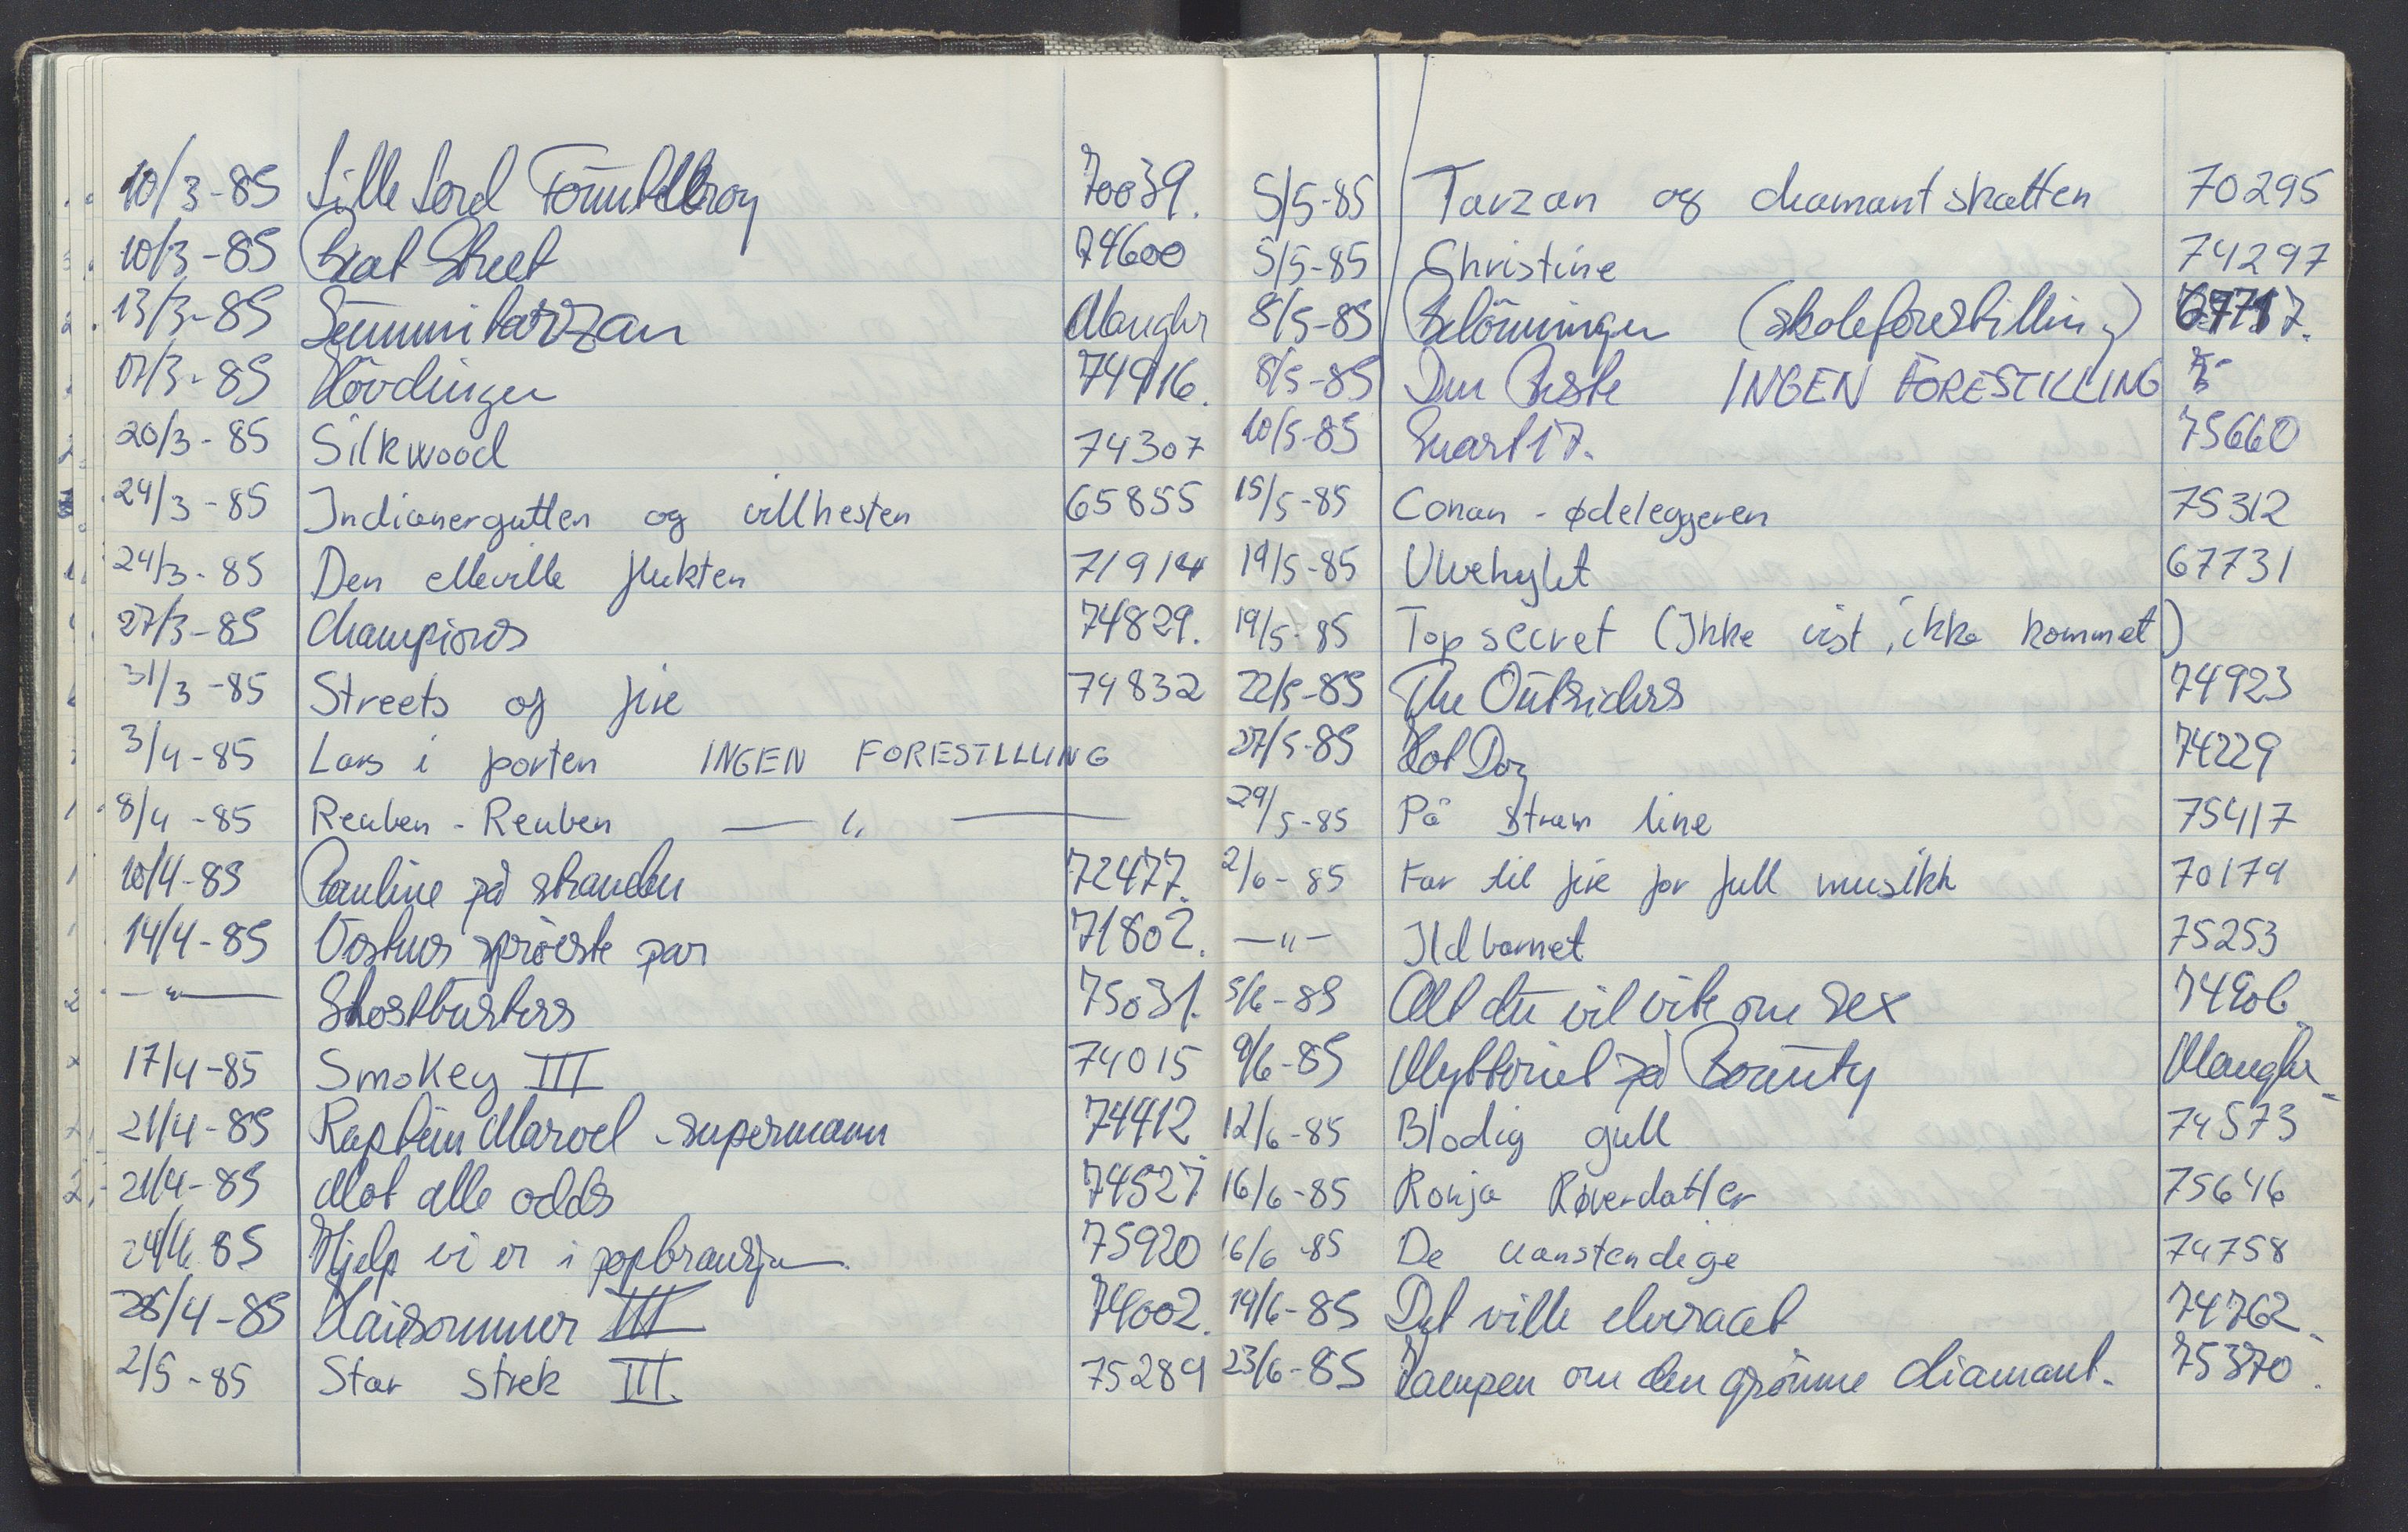 10/3-85 Lille Lord Fountelbroy 70039.
10/3-85 Beat Street 74600
13/3-85 Gummitarzan Mangler
17/3-85 Hövdingen 74916.
20/3-85 Silkwood 74307
24/3-85 Indianergutten og villhesten 65855
24/3-85 Den elleville flukten 71914
27/3-85 Champions 74829.
31/3-85 Streets of fire 74832
3/4-85 Lars i porten INGEN FORESTILLING
8/4-85 Reuben - Reuben — " —
10/4-85 Pauline på stranden 72477.
14/4-85 Vestens spröeste par 71802.
— " — Ghostbusters 75031.
17/4-85 Smokey III 74015
21/4-85 Kaptein Marvel - supermann 74412
21/4-85 Mot alle odds 74527
24/4 85 Hjelp vi er i popbransjen 75920
28/4-85 Haisommer III 74002.
2/5-85 Star strek III. 75289
5/5-85 Tarzan og diamantskatten 70295
5/5-85 Christine 74297
8/5-85 Belönningen (skoleforestilling)
8/5-85 Den Beste INGEN FORESTILLING
10/5-85 Snart 17. 75660
15/5-85 Conan - ødeleggeren 75312
19/5-85 Ulvehylet 67731
19/5-85 Top secret (Ikke vist, ikke kommet)
22/5-85 The Outsiders 74923
27/5-85 Hot Dog 74229
29/5-85 På stram line 75417
2/6-85 Far til fire for full musikk 70179
— " — Ildbarnet 75253
5/6-85 Alt du vil vite om sex 74906
9/6-85 Mytteriet på Bounty Mangler
12/6-85 Blodig gull 74573
16/6-85 Ronja Røverdatter 75646
16/6-85 De uanstendige 74758
19/6-85 Det ville elveracet 74762.
23/6-85 Kampen om den grönne diamant. 75370.